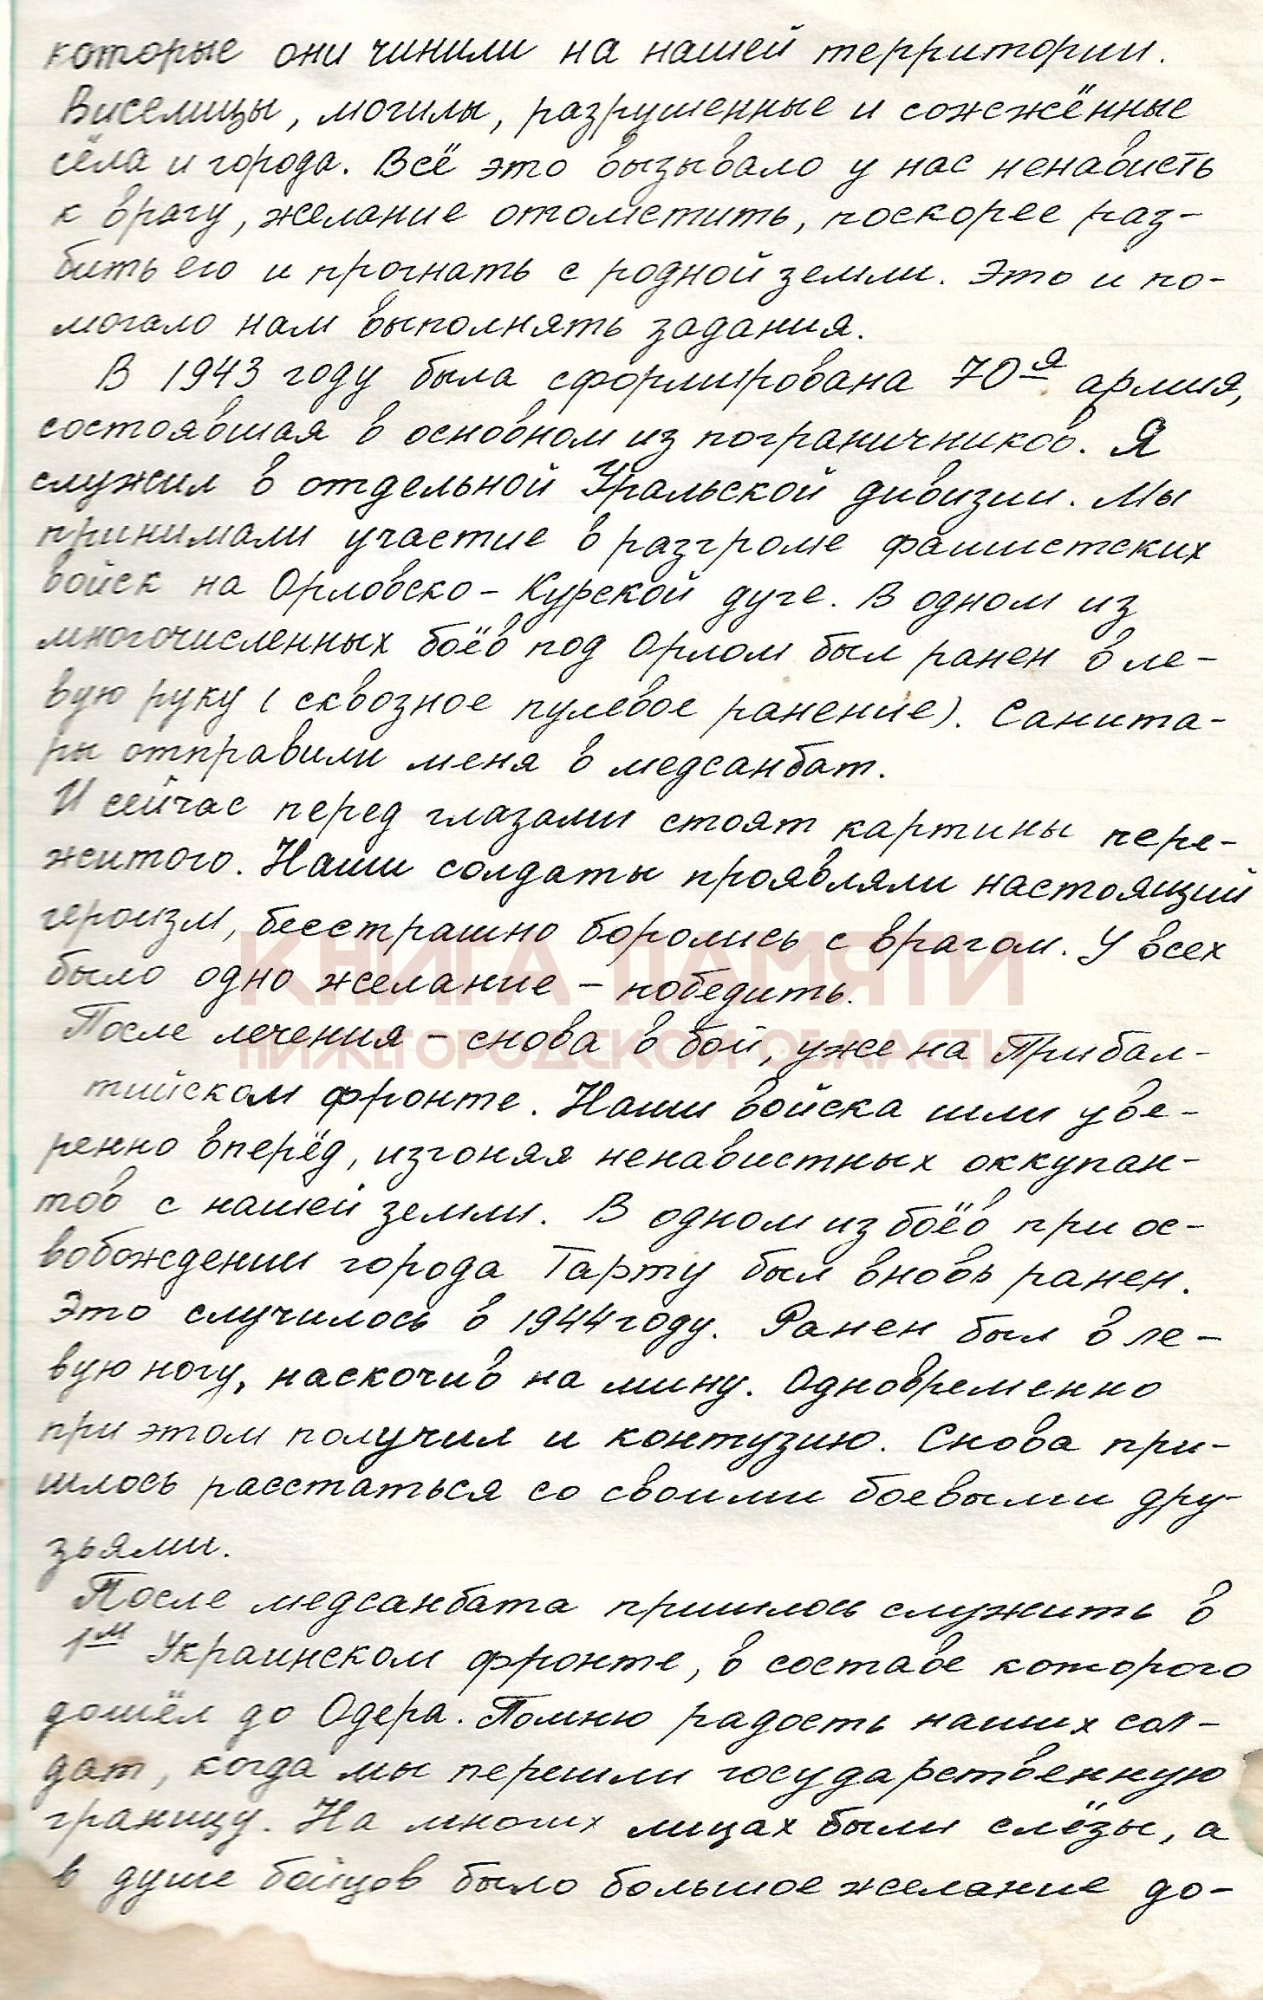 которые они чинили на нашей территории.
Виселицы, могилы, разрушенные и сожжённые
сёла и города. Всё это вызывало у нас ненависть
к врагу, желание отомстить, поскорее раз-
бить его и прогнать с родной земли. Это и по-
могало нам выполнять задания.
В 1943 году была сформирована 70я армия,
состоявшая в основном из пограничников. Я
служил в отдельной Уральской дивизии. Мы
принимали участие в разгроме фашистских
войск на Орловско-Курской дуге. В одном из
многочисленных боёв под Орлом был ранен в ле-
вую руку (сквозное пулевое ранение). Санита-
ры отправили меня в медсанбат.
И сейчас перед глазами стоят картины пере-
житого. Наши солдаты проявляли настоящий
героизм, бесстрашно боролись с врагом. У всех
было одно желание – победить.
КНИГА ПАМЯТИ
После лечения – снова в бой, уже на Прибал-
НИЖЕГОРОДСКОЙ ОБЛАСТИ
тийском фронте. Наши войска шли уве-
ренно вперёд, изгоняя ненавистных оккупан-
тов с нашей земли. В одном из боёв при ос-
вобождении города Тарту был вновь ранен.
Это случилось в 1944 году. Ранен был в ле-
вую ногу, наскочив на мину. Одновременно
при этом получил и контузию. Снова при-
шлось расстаться со своими боевыми дру-
зьями.
После медсанбата пришлось служить в
1м Украинском фронте, в составе которого
дошёл до Одера. Помню радость наших сол-
дат, когда мы перешли государственную
границу. На многих лицах были слёзы, а
в душе бойцов было большое желание до-